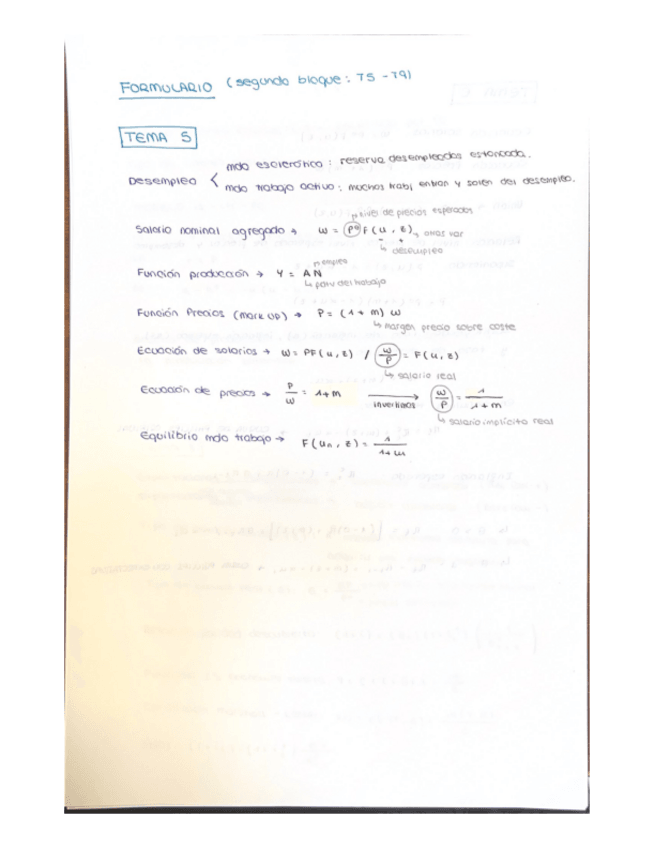 FORMULARIO (segundo bloque: T5 - T9)
TEMA 5
Desempleo < mdo esclerótico: reserva desempleados estancada.
mdo trabajo activo: muchos trabj entran y salen del desempleo.
nivel de precios esperados
Salario nominal agregado → W = Pe F(u, z) → otras var
- +
↳ desempleo
empleo
Función producción → Y = AN
↳ pdtv del trabajo
Función Precios (mark up) → P = (1 + m) w
↳ margen precio sobre coste
Ecuación de salarios → W = PF(u, z) / w/P = F(u, z)
↳ salario real
Ecuación de precios → P/W = 1+m invertimos → w/P = 1/1+m
↳ salario implícito real
Equilibrio mdo trabajo → F(un, z) = 1/1+m